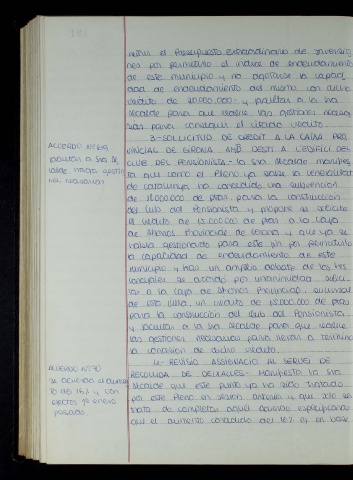 nerlur el Presupuesto extraordinario de inversio
nes por permitirlo el indice de endeudamiento
de este municipio y no agotarse la capaci
dad de endeudamiento del mismo con dicho
crédito de 20.000.000.- y facultar a la Sra.
Alcalde para que realice las gestiones necesa
rias para conseguir el citado crédito.
3.- SOLLICITUD DE CREDIT A LA CAIXA PRO
VINCIAL DE GIRONA AMB DESTI A L'EDIFICI DEL
CLUB DEL PENSIONISTA.- la Sra. Alcalde manifies
ta que como el Pleno ya sabe la Generalitat
de Catalunya ha concedido una subvención
de 12.000.000 de ptas. para la construcción
del Club del Pensionista y propone se solicite
el crédito de 15.000.000 de ptas a la Caja
de Ahorros Provincial de Gerona y que ya se
había gestionado para este fin por permitirlo
la capacidad de endeudamiento de este
municipio y tras un amplio debate de los Sres
Concejales se acordó por unanimidad solici
tar a la Caja de Ahorros Provincial, sucursal
de esta Villa, un crédito de 15.000.000 de ptas
para la construcción del Club del Pensionista
y facultar a la Sra Alcalde para que realice
las gestiones necesarias para llevar a término
la concesión de dicho crédito.
4.- REVISIÓ ASSIGNACIÓ AL SERVEI DE
RECOLLIDA DE DEIXALLES.- Manifiesta la Sra.
Alcalde que este punto ya ha sido tratado
por este Pleno en sesión anterior y que sólo se
trata de completar aquel acuerdo especificando
que el aumento concedido del 16% es en base
ACUERDO Nº 69
facultar a Sra Al
calde, haga gestio
nes necesarias
ACUERDO Nº 70
se acuerda el aumen
to del 16% y con
efectos 1º enero
pasado